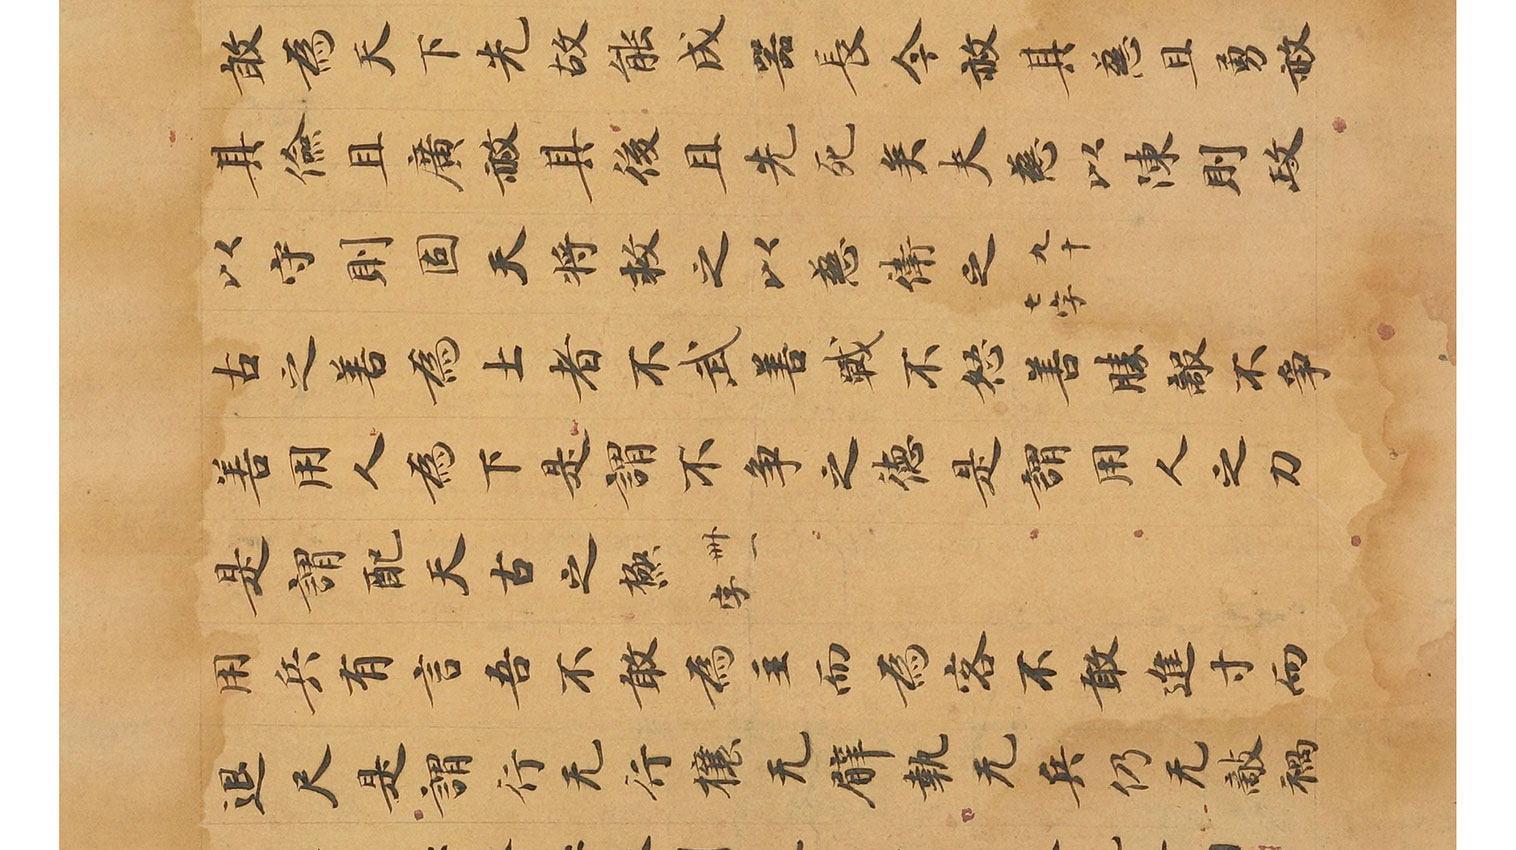 敢為天下先故能成器長今赦其慈且勇赦
其儉且廣赦其後且先死矣夫慈以陳則政
以守則固天將救之以慈衛之九十七字
古之善為士者不武善戰不怒善勝敵不爭
善用人為下是謂不爭之德是謂用人之力
是謂配天古之極卌一字
用兵有言吾不敢為主而為客不敢進寸而
退尺是謂行无行攘无臂執无兵仍无敵禍